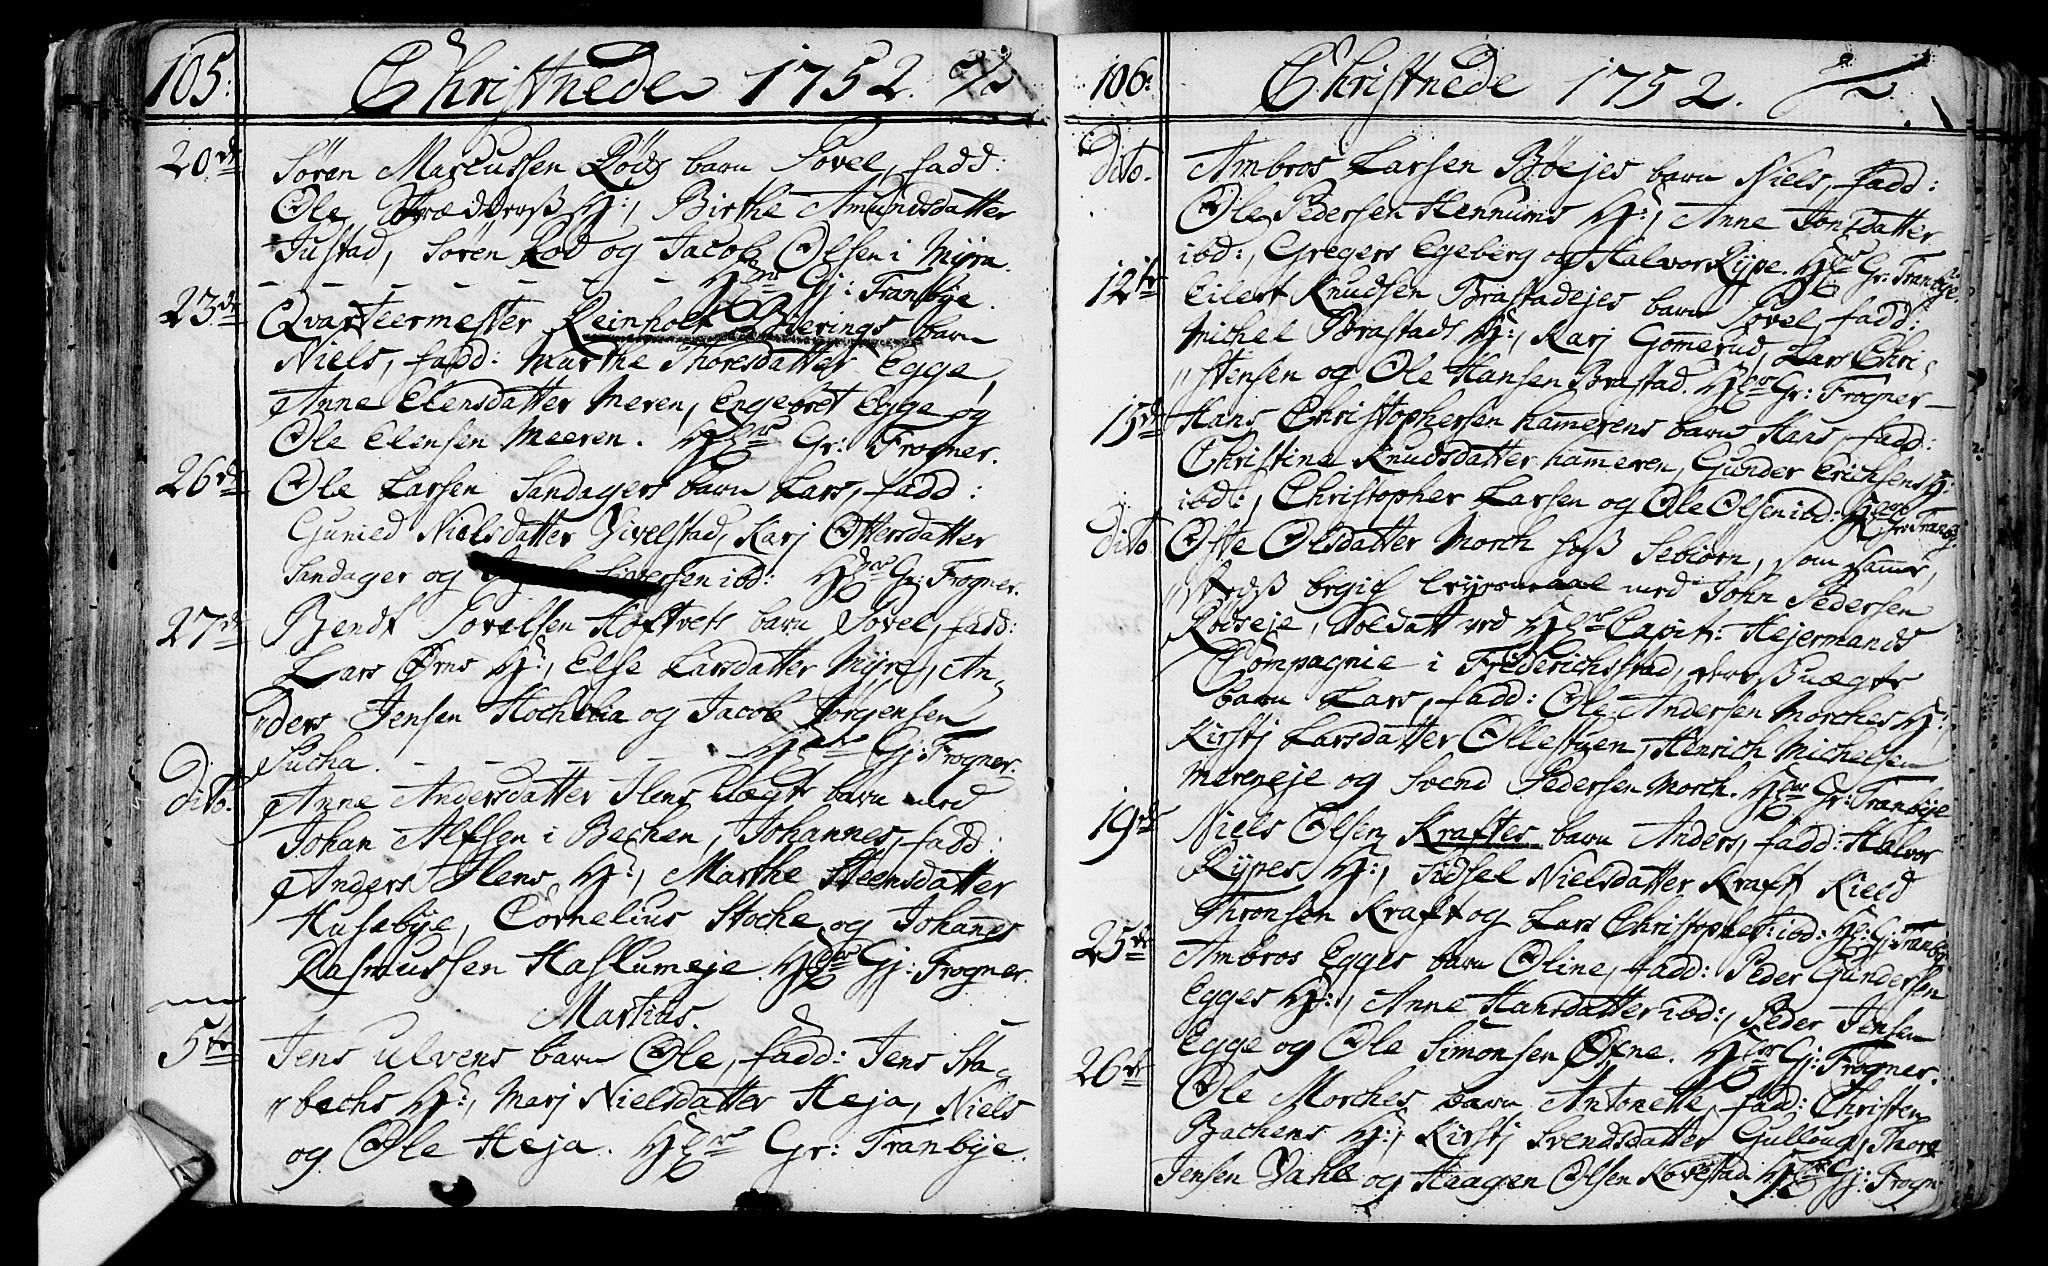 105:
Christnede 1752.
20de Søren Marcussen Röds barn Povel, fadd:
Ole H:, Birthe Amundsdatter
Justad, Søren Rod og Jacob Olsen i Myra.
Gj: Tranbye.
23de Qvarteermester Reinholt Bierings barn
Niels, fadd: Marthe Thoresdatter Egge,
Anne Ellensdatter Meren, Engebret Egge og
Ole Ellensen Meeren. Gr: Frogner.
26de Ole Larsen Sandagers barn Lars, fadd:
Gunied Nielsdatter Vivelstad, Karj Ottersdatter
Sandager og Siversen ibd: Gr: Frogner.
27de Bendt Povelsen Hoftvets barn Povel, fadd:
Lars Ørns H:, Else Larsdatter Myre, An-
ders Jensen Hochlia og Jacob Jørgensen
Sucha. Gj: Frogner.
Dito. Anne Andersdatter Flens uægte barn med
Johan Alfsen i Bechen, Johannes, fadd:
Anders Flens H:, Marthe Steensdatter
Husebye, Cornelius Stoche og Johanes
Rasmussen Haslumeje. Gj: Frogner.
Martius.
5te Jens Ulvens barn Ole, fadd: Jens Sta-
bechs H:, Marj Nielsdatter Heja, Niels
og Ole Heja. Gr: Tranbye.
106:
Christnede 1752.
Dito. Ambros Larsen Bøejes barn Niels, fadd:
Ole Pedersen Hennums H:, Anne Jonsdatter
ibd:, Gregers Egeberg og Halvor Rype. Gr: Tranbye.
12te Eilert Knudsen Brastadejes barn Povel, fadd:
Michel Brastads H:, Karj Gomerud, Lars Chri-
stensen og Ole Hansen Brastad. Gr: Frogner
15de Hans Christophersen Hamerens barn Hans, fadd:
Christine Knudsdatter Hameren, Gunder Erichsens H:
ibd:, Christopher Larsen og Ole Olsen ibd: Gr: Tranby.
Dito Olsdatter Morch hos Sebiørn, som samme
med John Pedersen
Rødseje, Soldat ved Capit: Hejermands
Compagnie i Friderichstad, deres uægte
barn Lars, fadd: Ole Andersen Morches H:,
Kirstj Larsdatter Ollestuen, Henrich Michelsen
Mereneje og Svend Pedersen Morch. Gr: Tranbye
19de Niels Olsen Kraftes barn Anders, fadd: Halvor
Rypes H:, Sidsel Nielsdatter Kraft, Kield
Thronsen Kraft og Lars Christopher: ibd: Gj: Tranby.
25de Ambros Egges barn Oline, fadd: Peder Gundersen
Egges H:, Anne Hansdatter ibd:, Peder Jensen
Egge og Ole Simonsen Øfne. Gj: Frogner.
26de Ole Morches barn Antonette, fadd: Christen
Bachens H:, Kirstj Svendsdatter Gulloug, Thore
Jensen Vahle og Haagen Olsen Kovestad Gj: Frogn: